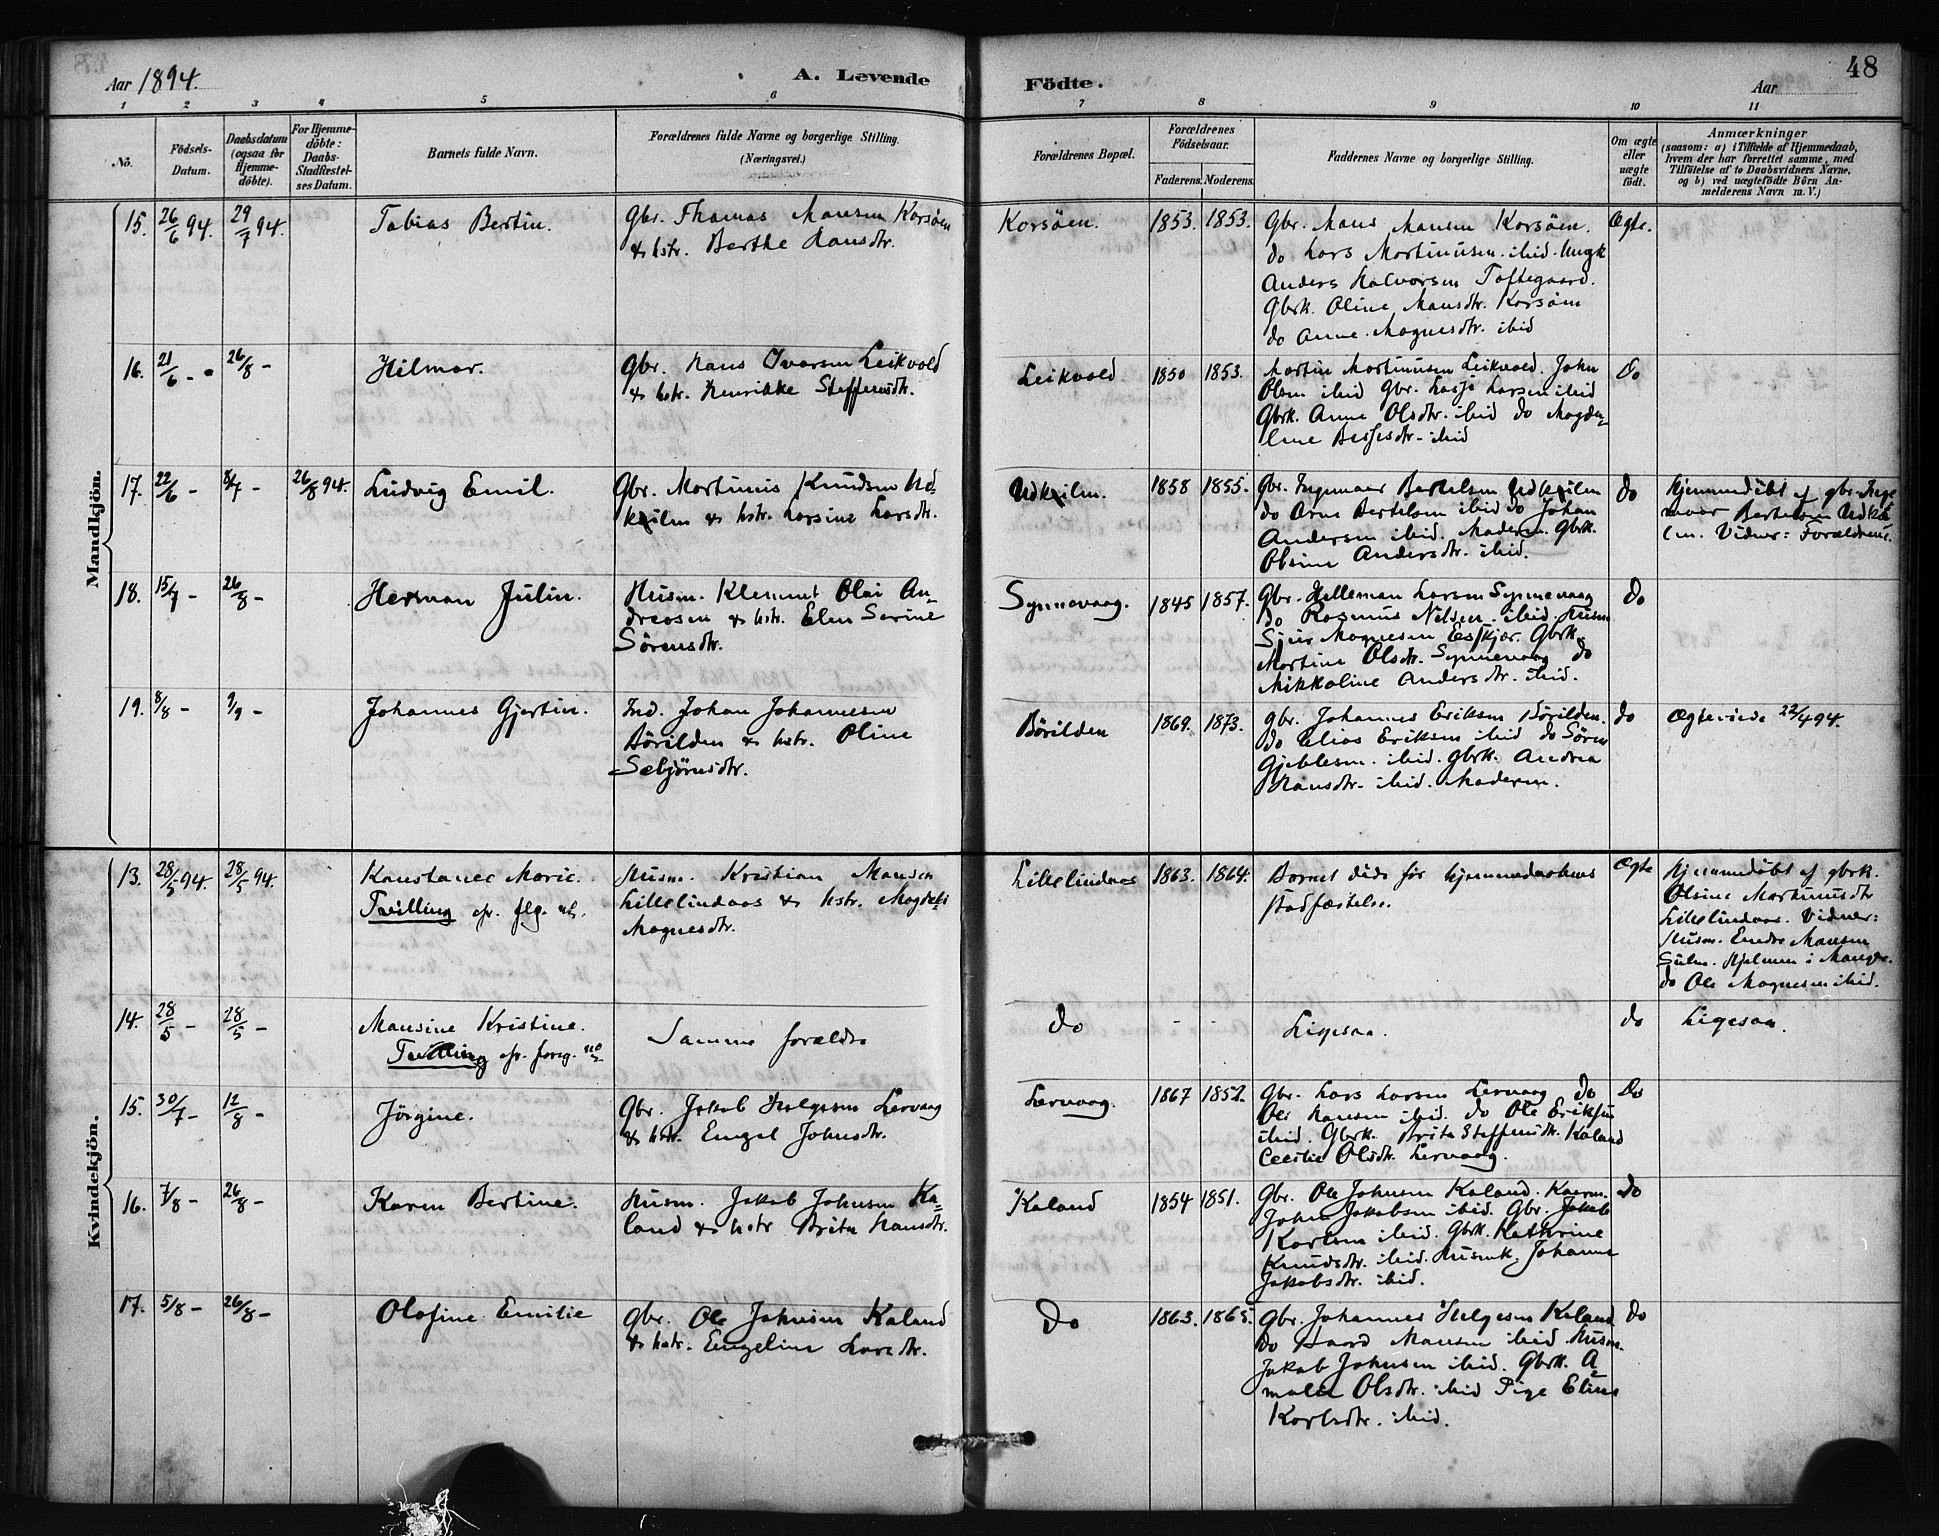 48
Aar 1894.
A. Levende
Födte.
Aar
1 2 3 4 5 6 7 8 9 10 11
No.
Födsels-
Datum.
Daabsdatum
(ogsaa for
Hjemme-
döbte).
For Hjemme-
döbte:
Daabs-
Stadfæstel-
ses Datum.
Barnets fulde Navn.
Forældrenes fulde Navne og borgerlige Stilling.
(Næringsvei.)
Forældrenes Bopæl.
Forældrenes
Födselsaar.
Faderens. Moderens.
Faddernes Navne og borgerlige Stilling.
Om ægte
eller
uægte
födt.
Anmærkninger
(saasom: a) i Tilfælde af Hjemmedaab,
hvem der har forrettet samme, med
Tilföielse af to Daabsvidners Navne,
og b) ved uægtefödte Börn An-
melderens Navn m. V.)
Mandkjön.
15. 26/6 94. 29/7 94.
Tobias Bertin.
Gbr. Thomas Mansen Korsöen
& hstr. Berthe Hansdtr.
Korsöen.
1853. 1853.
Gbr. Mons Monsen Korsöen.
do Lars Martinusen ibid. Ungk
Anders Halvorsen Toftegaard.
Gbrk. Oline Mansdtr. Korsöen
do Anne Magnesdtr. ibid
Ægte.
16. 21/6 - 26/8 -
Hilmar.
Gbr. Hans Ivarsen Leikvold
& hstr. Henrikke Steffensdtr.
Leikvold
1850 1853.
Martin Martinusen Leikvold. John
Olsen ibid Gbr. Lasse Larsen ibid
Gbrk. Anne Olsdtr. ibid do Magda-
lene ibid
do
17. 22/6 - 8/7 - 26/8 94.
Ludvig Emil.
Gbr. Martinus Knudsen Ud-
kilen & hstr. Larsine Larsdtr.
Udkilen.
1858 1855.
Gbr. Ingemaer Bertelsen Udkilen
do Arne Bertelsen ibid do Johan
Andersen ibid. Moderen. Gbrk.
Olsine Andersdtr. ibid.
do
Hjemmedöbt af gbr. Inge
maer Bertelsen Udki
len. Vidner: Forældrene.
18. 15/7 - 26/8 -
Herman Julin.
Husm. Klemmet Olai An-
dreasen & hstr. Elen Serine
Sörensdtr.
Synnevaag.
1845 1857.
Gbr. Helleman Larsen Synnevaag
do Rasmus Nilsen ibid. Husm
Sjur Magnesen Gbrk.
Martine Olsdtr. Synnevaag do
Mikkaline Andersdtr. ibid.
do
19. 8/8 - 9/9 -
Johannes Gjertin.
Ind. Johan Johannesen
Börilden & hstr. Oline
Sebjörnsdtr.
Börilden
1869. 1873.
Gbr. Johannes Eriksen Börilden.
do Elias Eriksen ibid do Sören
Gjeblesen ibid. gbrk. Andrea
Hansdtr. ibid. Moderen.
do
Ægteviede 22/4 94.
Kvindekjön.
13. 28/5 94. 28/5 94.
Konstance Marie.
Tvilling cfr. flg. no.
Husm. Kristian Mansen
Lillelindaas & hstr. Magdeli
Magnesdtr.
Lillelindaas
1863. 1864.
Barnet döde för hjemmedaabens
stadfæstelse.
Ægte
Hjemmedöbt af gbrk.
Olsine Martinusdtr
Lillelindaas. Vidner:
Husm. Endre Mansen
Hjelmen i Manger.
do Ole Magnesen ibid.
14. 28/5 - 28/5 -
Mansine Kristine.
Tvilling cfr. foreg. no
Samme forældre
do
- -
Ligesaa.
do
Ligesaa.
15. 30/7 - 12/8 -
Jörgine.
Gbr. Jakob Helgesen Lervaag
& hstr. Engel Johnsdtr.
Lervaag.
1867 1852.
Gbr. Lars Larsen Lervaag do
Ole Hansen ibid. do Ole Eriksen
ibid. Gbrk. Brita Steffensdtr. Kaland
Cecilie Olsdtr. Lervaag.
do
16. 7/8 - 26/8 -
Karen Bertine.
Husm. Jakob Johnsen Ka-
land & hstr Brita Hansdtr.
Kaland
1854 1851.
Gbr. Ole Johnsen Kaland.
John Jakobsen ibid. Gbr. Jakob
Karlsen ibid. Gbrk. Kathrine
Knudsdtr. ibid. Husmk. Johanne
Jakobsdtr. ibid.
do
17. 5/8 - 26/8 -
Olofine Emilie
Gbr. Ole Johnsen Kaland
& hstr. Engeline Larsdtr.
do
1863. 1865.
Gbr. Johannes Helgesen Kaland
do Haavd Mansen ibid Husm.
Jakob Johnsen ibid. Gbrk. A-
malie Olsdtr. ibid Pige Eline
Karlsdtr. ibid.
do